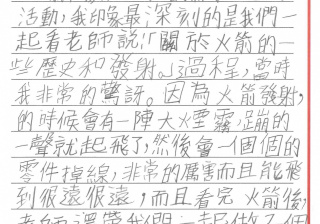 活動，我印象最深刻的是我們一
起看老師說，「關於火箭的一
些歷史和發射。」過程，當時
我非常的驚訝。因為火箭發射，
的時候會有一陣大火煙霧，蹦的
一聲就起飛了，然後會一個個的
零件掉線，非常的厲害而且能飛
到很遠很遠，而且看完火箭後，
老師還帶我們一起做了個